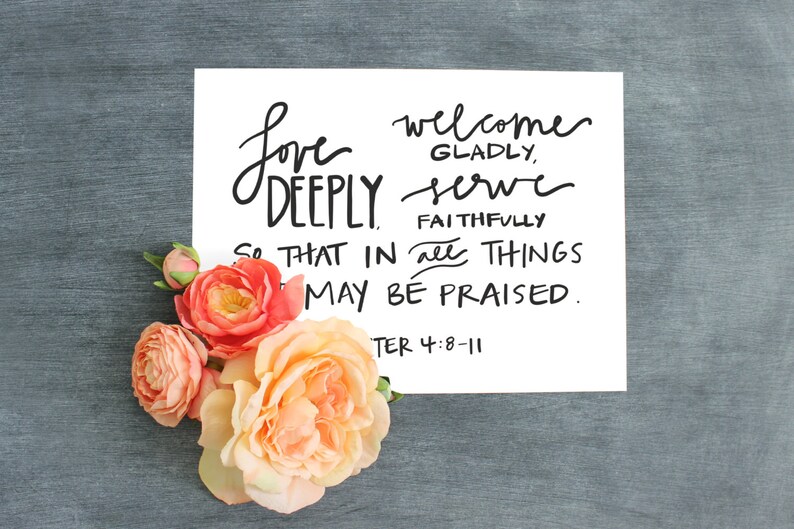 Love
DEEPLY,
welcome
GLADLY,
serve
FAITHFULLY
SO THAT IN all THINGS
MAY BE PRAISED.
4:8-11